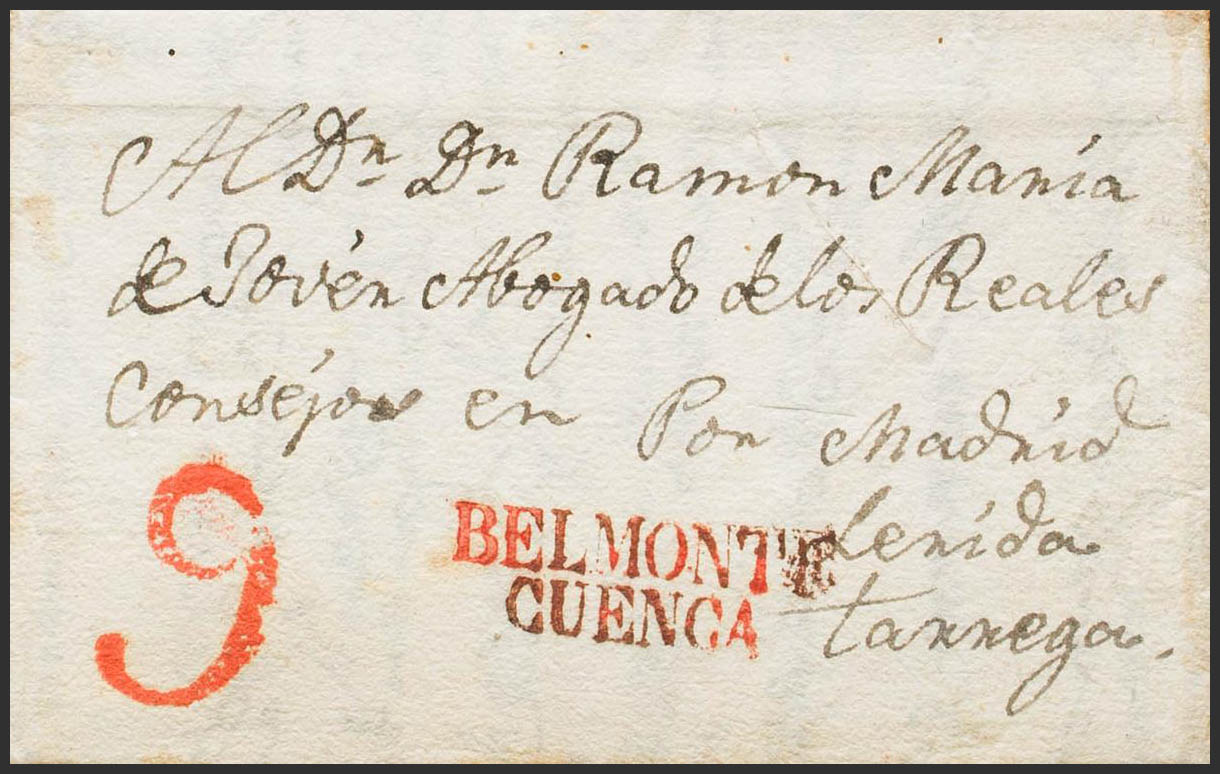 Al Dn. Dn. Ramon Maria
de Jovér Abogado de los Reales
Conséjos en Por Madrid
Lerida
Tarrega.
9
BELMONTE
CUENCA